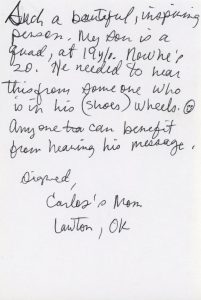 Such a beautiful, inspiring
person. My son is a
quad, at 19 y/o. Now he's
20. He needed to hear
this from someone who
is in his (shoes) wheels. ☺
Anyone can benefit
from hearing his message.
Signed,
Carlos's Mom
Lawton, OK